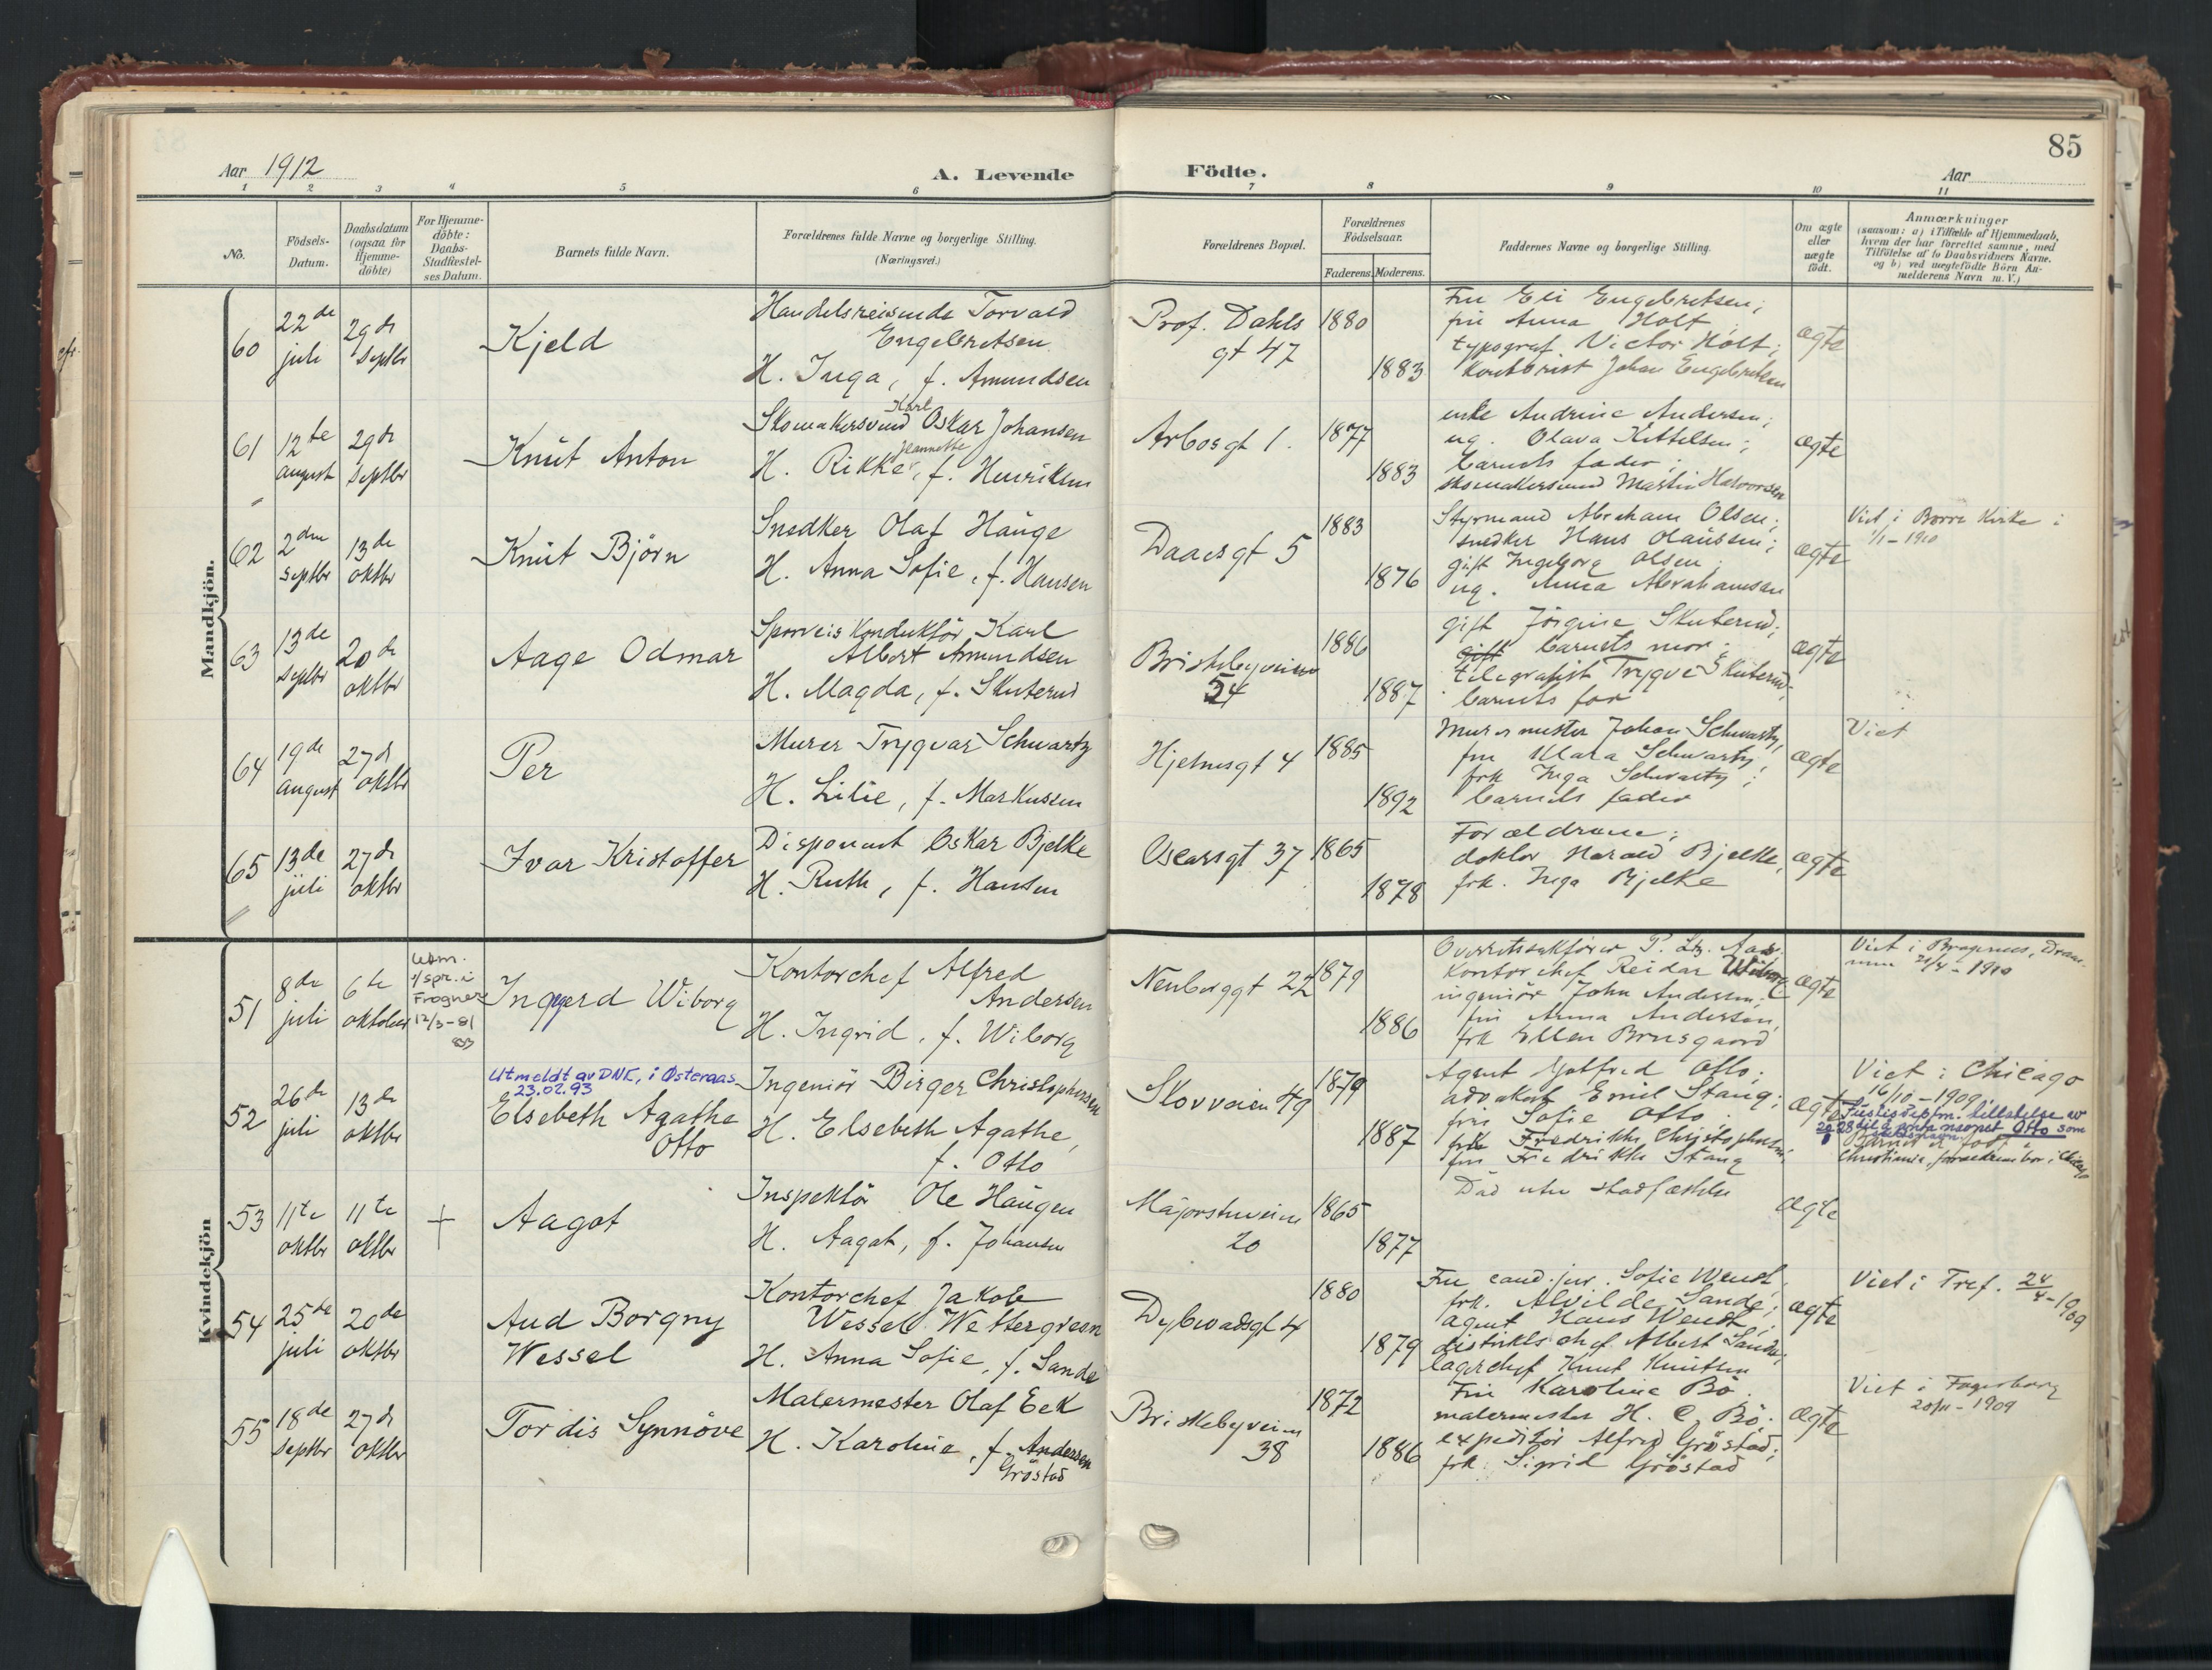 85
Aar 1912
A. Levende
Födte.
Aar
1 2 3 4 5 6 7 8 9 10 11
No.
Födsels-
Datum.
Daabsdatum
(ogsaa for
Hjemme-
döbte)
For Hjemme-
döbte:
Daabs-
Stadfæstel-
ses Datum.
Barnets fulde Navn.
Forældrenes fulde Navne og borgerlige Stilling.
(Næringsvei.)
Forældrenes Bopæl.
Forældrenes
Födselsaar.
Faderens. Moderens.
Faddernes Navne og borgerlige Stilling.
Om ægte
eller
uægte
födt.
Anmærkninger
(saasom: a) i Tilfælde af Hjemmedaab,
hvem der har forrettet samme, med
Tilföielse af to Daabsvidners Navne,
og b) ved uægtefödte Börn An-
melderens Navn m. V.)
Mandkjön.
60
22de
juli
29de
septbr
Kjeld
Handelsreisende Torvald
Engebretsen
H. Inga, f. Amundsen
Prof. Dahls
gt 47
1880
1883
Fru Eli Engebretsen;
fru Anna Holt
typograf Victor Holt;
kontorist Johan Engebretsen
ægte
61
12te
august
29de
septbr
Knut Anton
Karl
Skomakersvend Oskar Johansen
Jeannette
H. Rikke, f. Henriksen
Arbosgt 1.
1877
1883
enke Andrine Andersen;
ug. Olava Kittelsen;
barnets fader;
skomakersvend Martin Halvorsen
ægte
62
2den
septbr
13de
oktbr
Knut Björn
Snedker Olaf Hauge
H. Anna Sofie, f. Hansen
Daaesgt 5
1883
1876
Styrmand Abraham Olsen;
snedker Hans Olaussen;
gift Ingeborg Olsen
ug. Anna Abrahamsen
ægte
Viet i Borre Kirke i
1/1 - 1910
63
13de
septbr
20de
oktbr
Aage Odmar
Sporveiskonduktör Karl
Albert Amundsen
H. Magda, f. Skuterud
Briskebyveien
54
1886
1887
gift Jörgine Skuterud;
gift barnets mor;
telegrafist Trygve Skuterud;
barnets far
ægte
64
19de
august
27de
oktbr
Per
Murer Trygvar Schwartz
H. Lilie, f. Markussen
Hjelmsgt 4
1885
1892
Murermester Johan Schwartz,
fru Klara Schwartz;
frk Inga Schwartz;
barnets fader
ægte
Viet
65
13de
juli
27de
oktbr
Ivar Kristoffer
Disponent Oskar Bjelke
H. Ruth, f. Hansen
Oscarsgt 37
1865
1878
Forældrene;
doktor Harald Bjelke,
frk. Inga Bjelke
ægte
Kvindekjön
51
8de
juli
6te
oktober
Utm.
e/spr. i
Frogner
12/3-81
Ingjerd Wiborg
Kontorchef Alfred
Andersen
H. Ingrid, f. Wiborg
Neuberggt 22
1879
1886
Overretssakförer P. Aas;
kontorchef Reidar Wiborg
ingeniör John Andersen;
fru Anna Andersen,
frk Ellen Brusgaard
ægte
Viet i Bragernes, Dram-
men 21/4 - 1910
52
26de
juli
13de
oktbr
Utmeldt av DNK, i Østeraas
23.02.93
Elsebeth Agathe
Otto
Ingeniör Birger Christophersen
H. Elsebeth Agathe,
f. Otto
Slovveien 49
1879
1887
Agent Gotfred Otto;
advokat Emil Stang;
fru Sofie Otto;
frk Fredrikke Christophersen;
fru Fredrikke Stang
ægte
Viet i Chicago
16/10 - 1909
Justisdep/m. tillatelse av
28 til å anta navnet Otto som
Barnet er født i
Christiania, forældrene bor i Chicago
53
11te
oktbr
11te
oktbr
+
Aagot
Inspektör Ole Haugen
H. Aagot, f. Johansen
Majorstuveien
20
1865
1877
Död uten stadfæstelse
ægte
54
25de
juli
20de
oktbr
Aud Borgny
Wessel
Kontorchef Jakob
Wessel Wettergreen
H. Anna Sofie, f. Sande
Dybwadsgt 4
1880
1879
Fru cand. jur. Sofie Wendt,
frk. Alvilde Sande;
agent Hans Wendt,
distriktschef Albert Sande,
lagerchef Knut Knutsen
ægte
Viet i Tref. 24/4 - 1909
55
18de
septbr
27de
oktbr
Tordis Synnöve
Malermester Olaf Eek
H. Karoline, f. Andersen
Gröstad
Briskebyveien
38
1872
1886
Fru Karoline Bö
malermester H. C. Bö;
expeditör Alfred Gröstad;
frk. Sigrid Gröstad
ægte
Viet i Fagerborg
20/11 - 1909